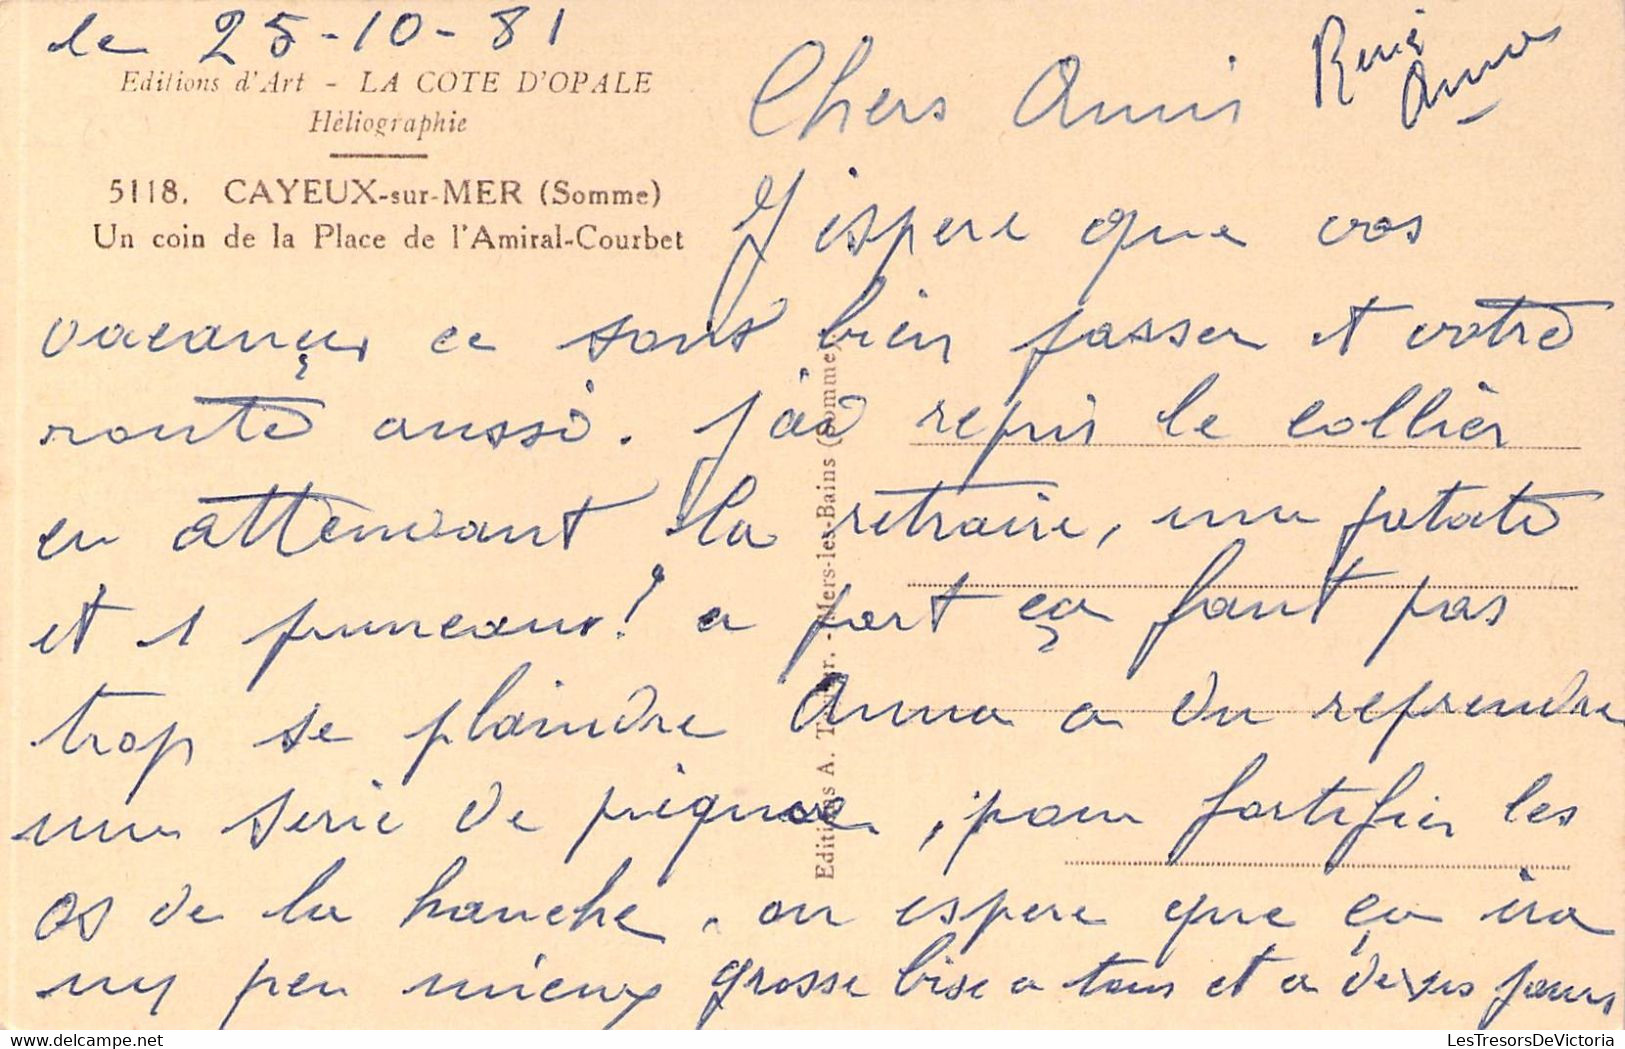 le 25-10-81
Editions d'Art - LA COTE D'OPALE
Héliographie
5118. CAYEUX-sur-MER (Somme)
Un coin de la Place de l'Amiral-Courbet
René
Anna
Chers Amis
J'espere que vos
vacances ce sont bien passer et votre
route aussi. J'ai repris le collier
en attendant la retraire, une patate
et 1 pruneaux! a part ça faut pas
trop se plaindre Anna a du reprendre
une serie de piqure, pour fortifier les
os de la hanche. on espere que ça ira
un peu mieux grosse bise a tous et a
Editions A. - Mers-les-Bains (Somme)
LesTresorsDeVictoria.com